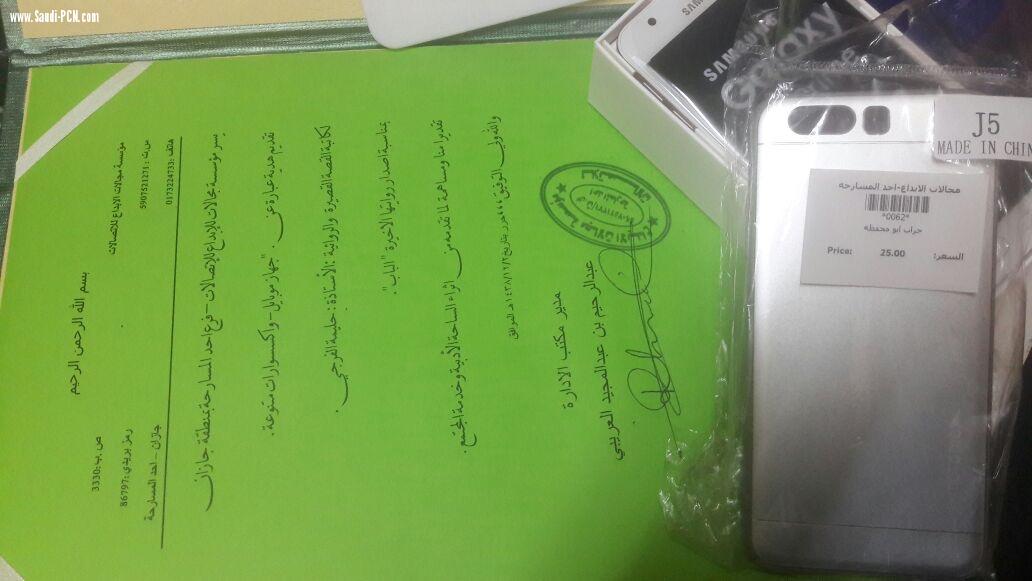 www.Saudi-PCN.com
بسم الله الرحمن الرحيم
مؤسسة مجالات الابداع للاتصالات
س.ت : 5907521271
هاتف : 0173224733
ص.ب: 3330
رمز بريدي : 86797
جازان - احد المسارحة
يسر مؤسسة مجالات للإبداع للإتصالات - فرع احد المسارحة بمنطقة جازان
تقديم هدية عبارة عن . "جهاز موبايل - واكسسوارات متنوعة .
لكاتبة القصة القصيرة والروائية :الأستاذة : حليمة الفرجي .
بمناسبة اصدار روايتها الاخيرة "الباب".
تقديرا منا ومساهمة لما تقدمه من اثراء الساحة الأدبية وخدمة المجتمع .
والله ولي التوفيق ،،، حرر بتاريخ ١٤٣٨/١٢/٢هـ الموافق
مدير مكتب الادارة
عبدالرحيم بن عبدالمجيد العريبي
SAMSUNG
SAMSUNG
Galaxy
J5
MADE IN CHIN
مجالات الابداع-احد المسارحه
*0062*
جراب ابو محفظه
السعر: 25.00 Price: